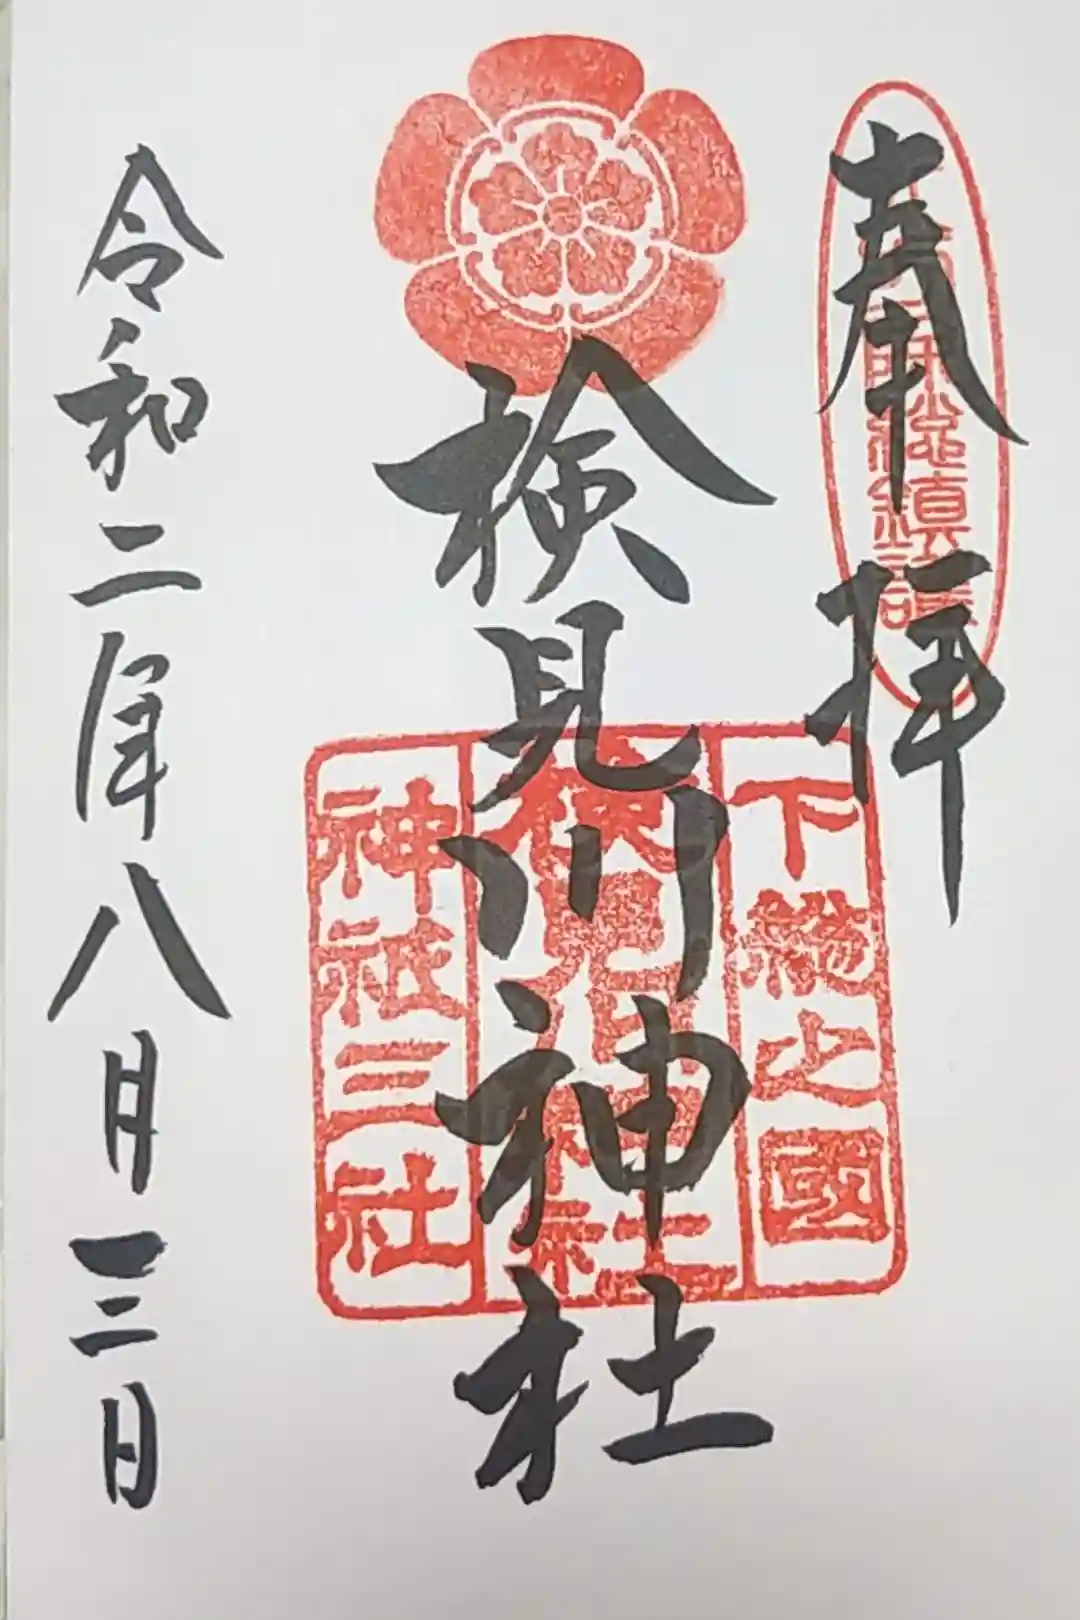 奉拝
検見川神社
下総之國
検見川神社
神祇三社
令和二年八月三日